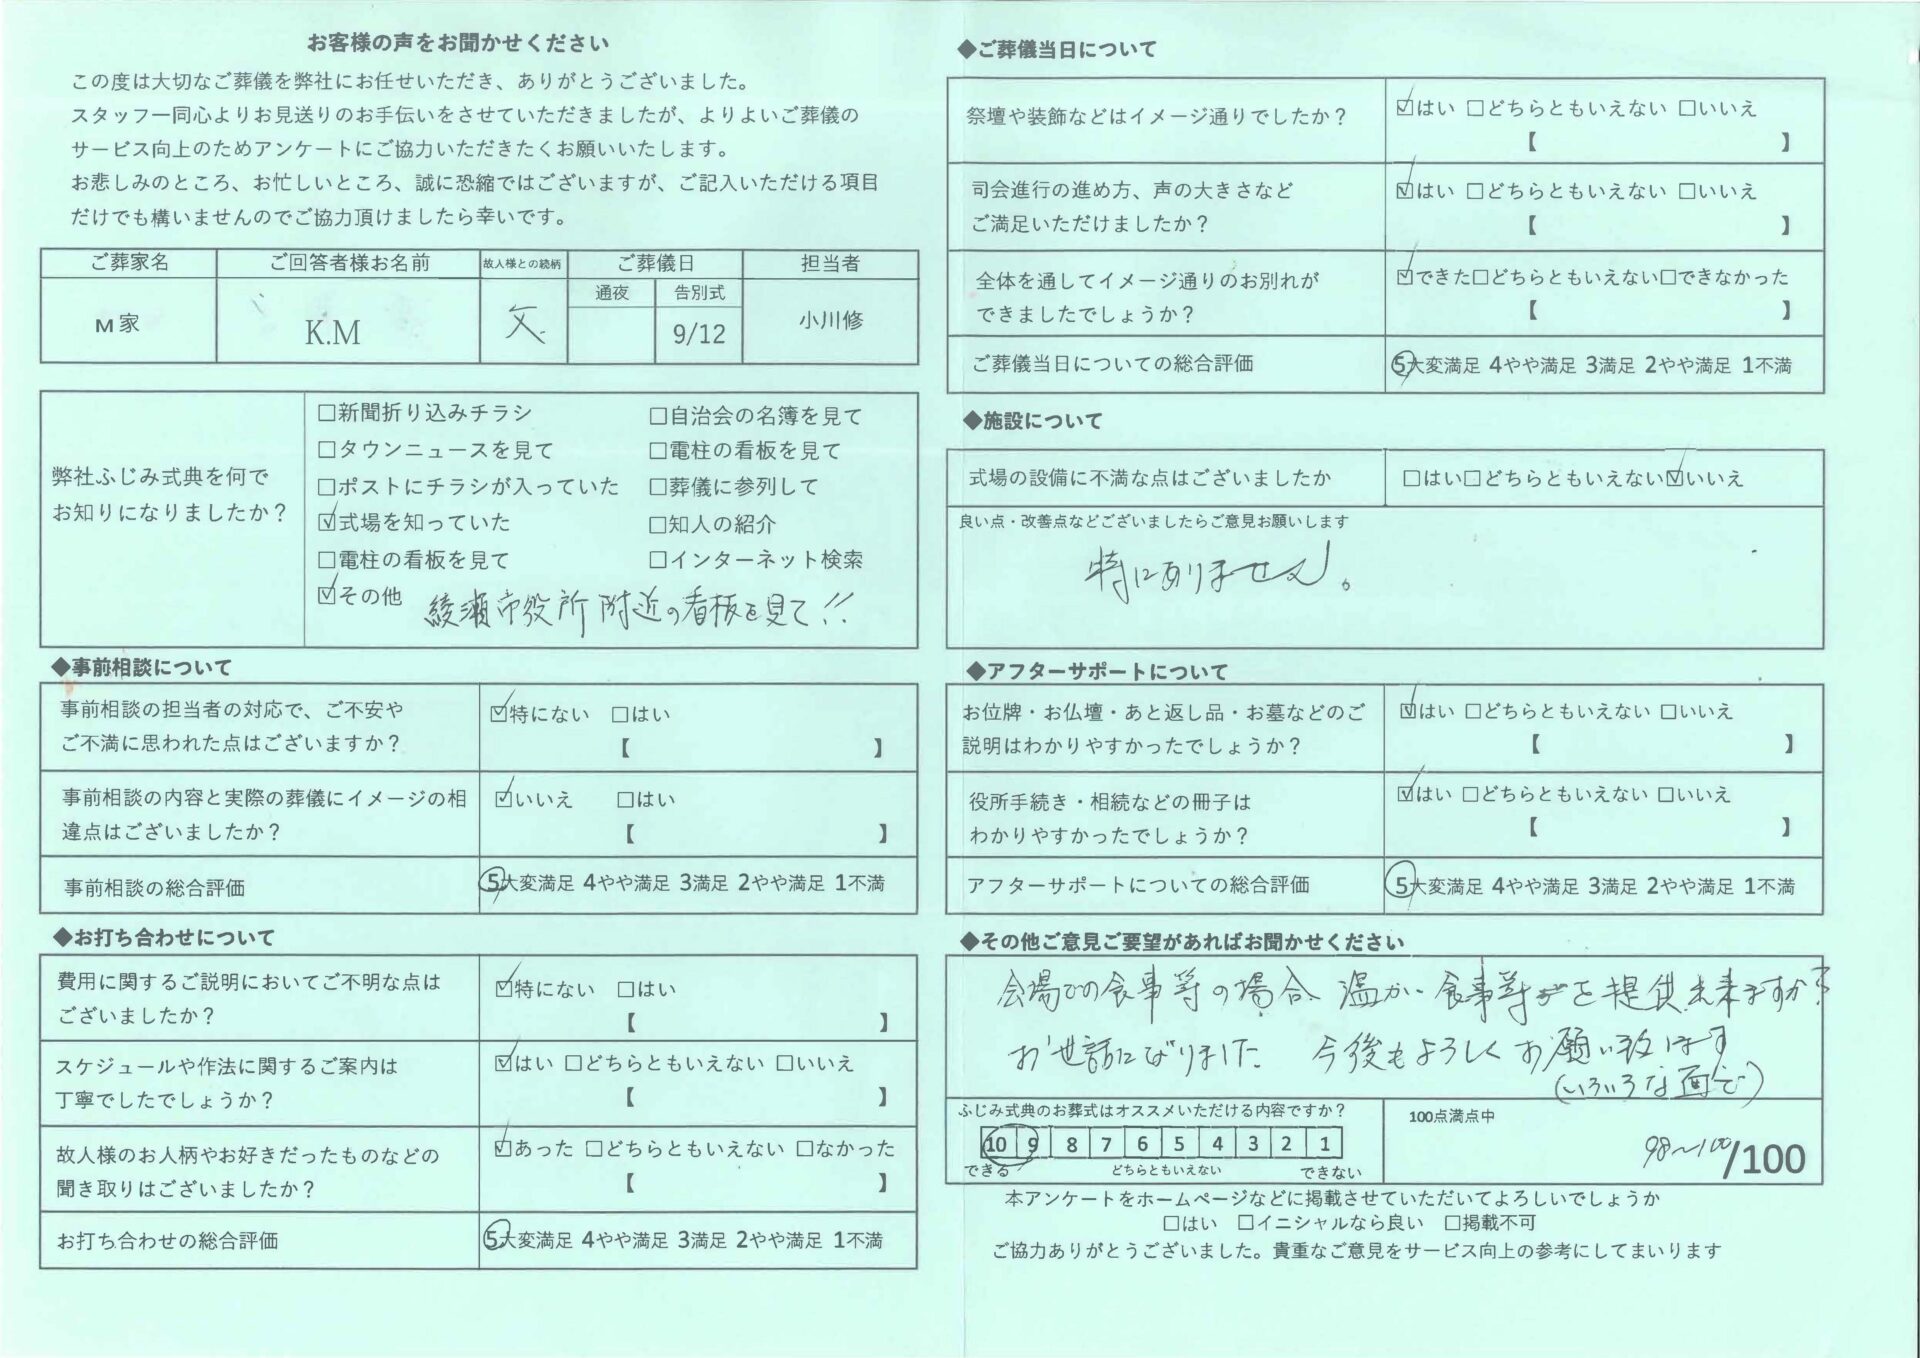 お客様の声をお聞かせください
この度は大切なご葬儀を弊社にお任せいただき、ありがとうございました。
スタッフ一同心よりお見送りのお手伝いをさせていただきましたが、よりよいご葬儀の
サービス向上のためアンケートにご協力いただきたくお願いいたします。
お悲しみのところ、お忙しいところ、誠に恐縮ではございますが、ご記入いただける項目
だけでも構いませんのでご協力頂けましたら幸いです。
ご葬家名 ご回答者様お名前 故人様との続柄 ご葬儀日 担当者
通夜 告別式
M家 K.M 父. 9/12 小川修
弊社ふじみ式典を何で
お知りになりましたか？
□新聞折り込みチラシ □自治会の名簿を見て
□タウンニュースを見て □電柱の看板を見て
□ポストにチラシが入っていた □葬儀に参列して
☑式場を知っていた □知人の紹介
□電柱の看板を見て □インターネット検索
☑その他 綾瀬市役所附近の看板を見て!!
◆事前相談について
事前相談の担当者の対応で、ご不安や
ご不満に思われた点はございますか？
☑特にない □はい
【 】
事前相談の内容と実際の葬儀にイメージの相
違点はございましたか？
☑いいえ □はい
【 】
事前相談の総合評価 5大変満足 4やや満足 3満足 2やや満足 1不満
◆お打ち合わせについて
費用に関するご説明においてご不明な点は
ございましたか？
☑特にない □はい
【 】
スケジュールや作法に関するご案内は
丁寧でしたでしょうか？
☑はい □どちらともいえない □いいえ
【 】
故人様のお人柄やお好きだったものなどの
聞き取りはございましたか？
☑あった □どちらともいえない □なかった
【 】
お打ち合わせの総合評価 5大変満足 4やや満足 3満足 2やや満足 1不満
◆ご葬儀当日について
祭壇や装飾などはイメージ通りでしたか？
☑はい □どちらともいえない □いいえ
【 】
司会進行の進め方、声の大きさなど
ご満足いただけましたか？
☑はい □どちらともいえない □いいえ
【 】
全体を通してイメージ通りのお別れが
できましたでしょうか？
☑できた□どちらともいえない□できなかった
【 】
ご葬儀当日についての総合評価 5大変満足 4やや満足 3満足 2やや満足 1不満
◆施設について
式場の設備に不満な点はございましたか □はい□どちらともいえない☑いいえ
良い点・改善点などございましたらご意見お願いします
特にありません。
◆アフターサポートについて
お位牌・お仏壇・あと返し品・お墓などのご
説明はわかりやすかったでしょうか？
☑はい □どちらともいえない □いいえ
【 】
役所手続き・相続などの冊子は
わかりやすかったでしょうか？
☑はい □どちらともいえない □いいえ
【 】
アフターサポートについての総合評価 5大変満足 4やや満足 3満足 2やや満足 1不満
◆その他ご意見ご要望があればお聞かせください
会場での食事等の場合、温かい食事等を提供出来ますか?
お世話になりました 今後もよろしくお願い致します
(いろいろな面で)
ふじみ式典のお葬式はオススメいただける内容ですか？
10 9 8 7 6 5 4 3 2 1
できる どちらともいえない できない
100点満点中
98〜100/100
本アンケートをホームページなどに掲載させていただいてよろしいでしょうか
□はい □イニシャルなら良い □掲載不可
ご協力ありがとうございました。貴重なご意見をサービス向上の参考にしてまいります